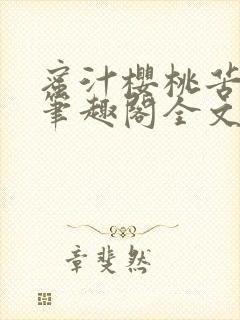 蜜汁樱桃苦
笔趣阁全文
章斐然